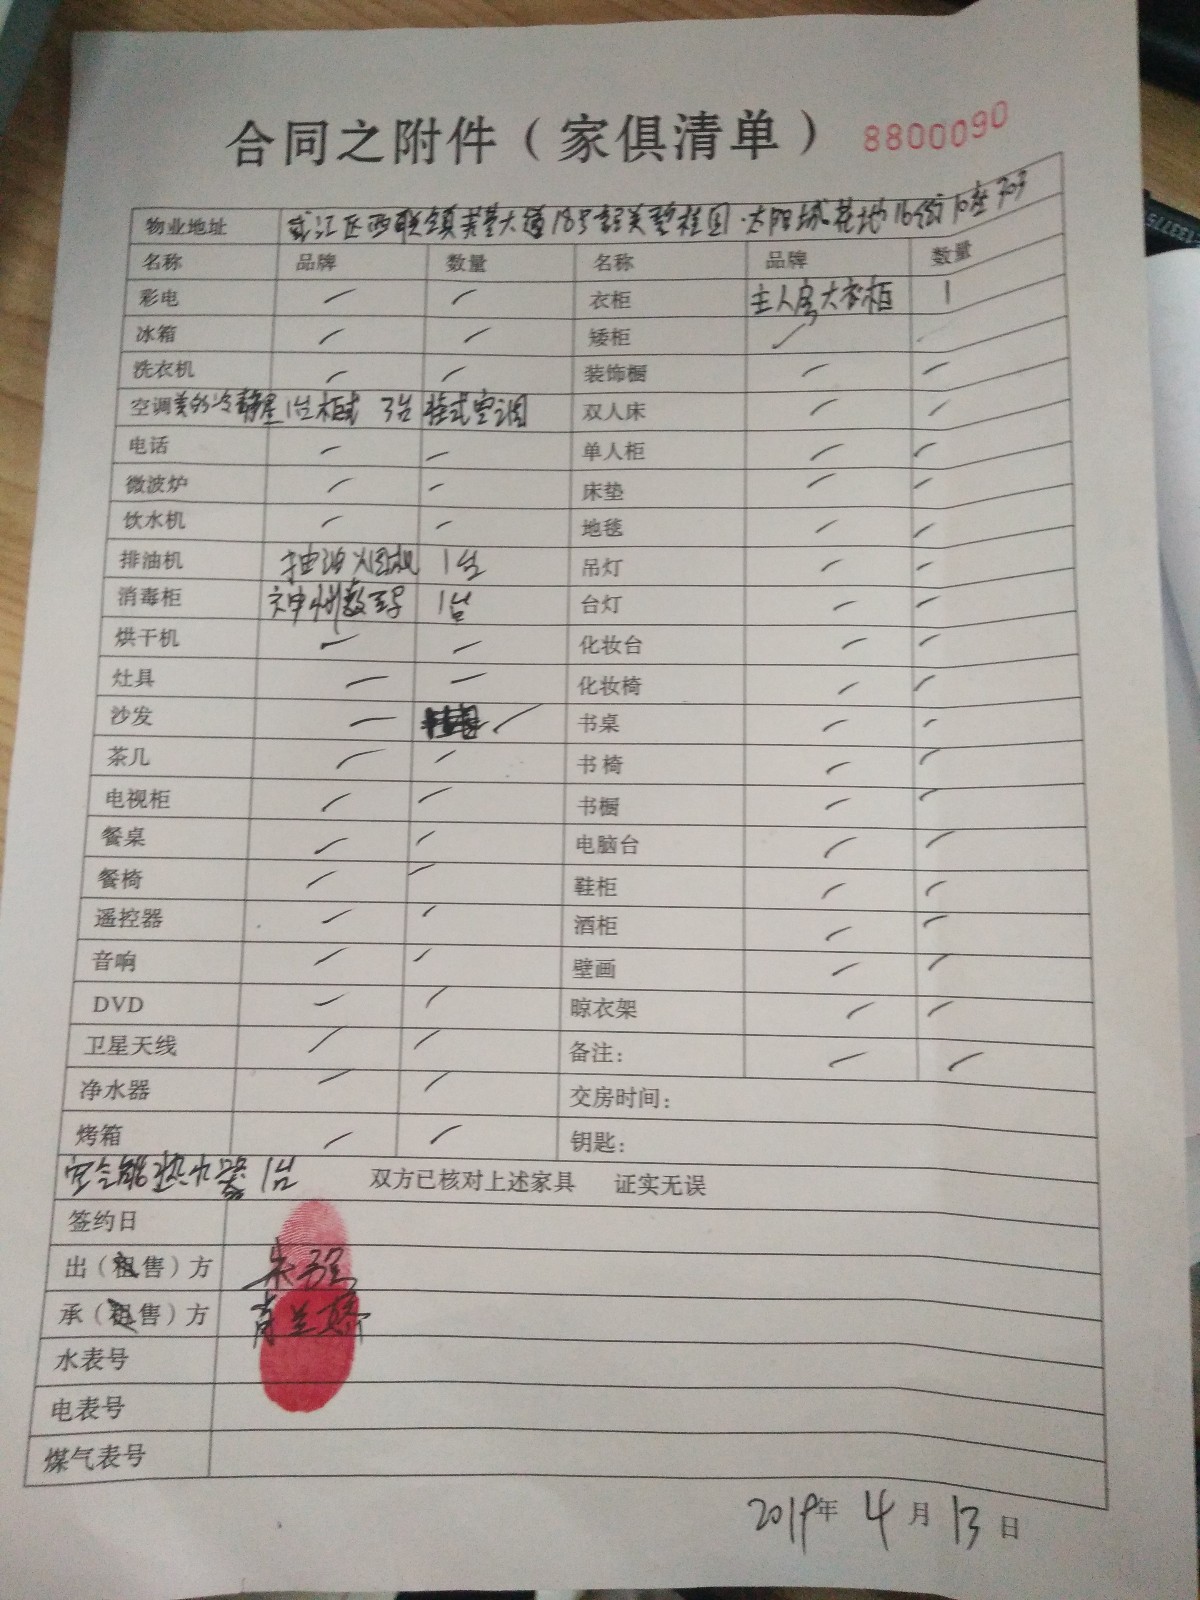 合同之附件（家俱清单） 8800090
物业地址 武江区西联镇芙蓉大道18号韶关碧桂园·太阳城花地16街10座703
名称 品牌 数量 名称 品牌 数量
彩电 衣柜 主人房大衣柜 1
冰箱 矮柜
洗衣机 装饰橱
空调 美的冷静星1台柜式 3台挂式空调 双人床
电话 单人柜
微波炉 床垫
饮水机 地毯
排油机 抽油烟机 1台 吊灯
消毒柜 神州数码 1台 台灯
烘干机 化妆台
灶具 化妆椅
沙发 书桌
茶几 书椅
电视柜 书橱
餐桌 电脑台
餐椅 鞋柜
遥控器 酒柜
音响 壁画
DVD 晾衣架
卫星天线 备注：
净水器 交房时间：
烤箱 钥匙：
热水器1台 双方已核对上述家具 证实无误
签约日
出（租售）方 朱强
承（租售）方 肖兰娇
水表号
电表号
煤气表号
2019年4月13日